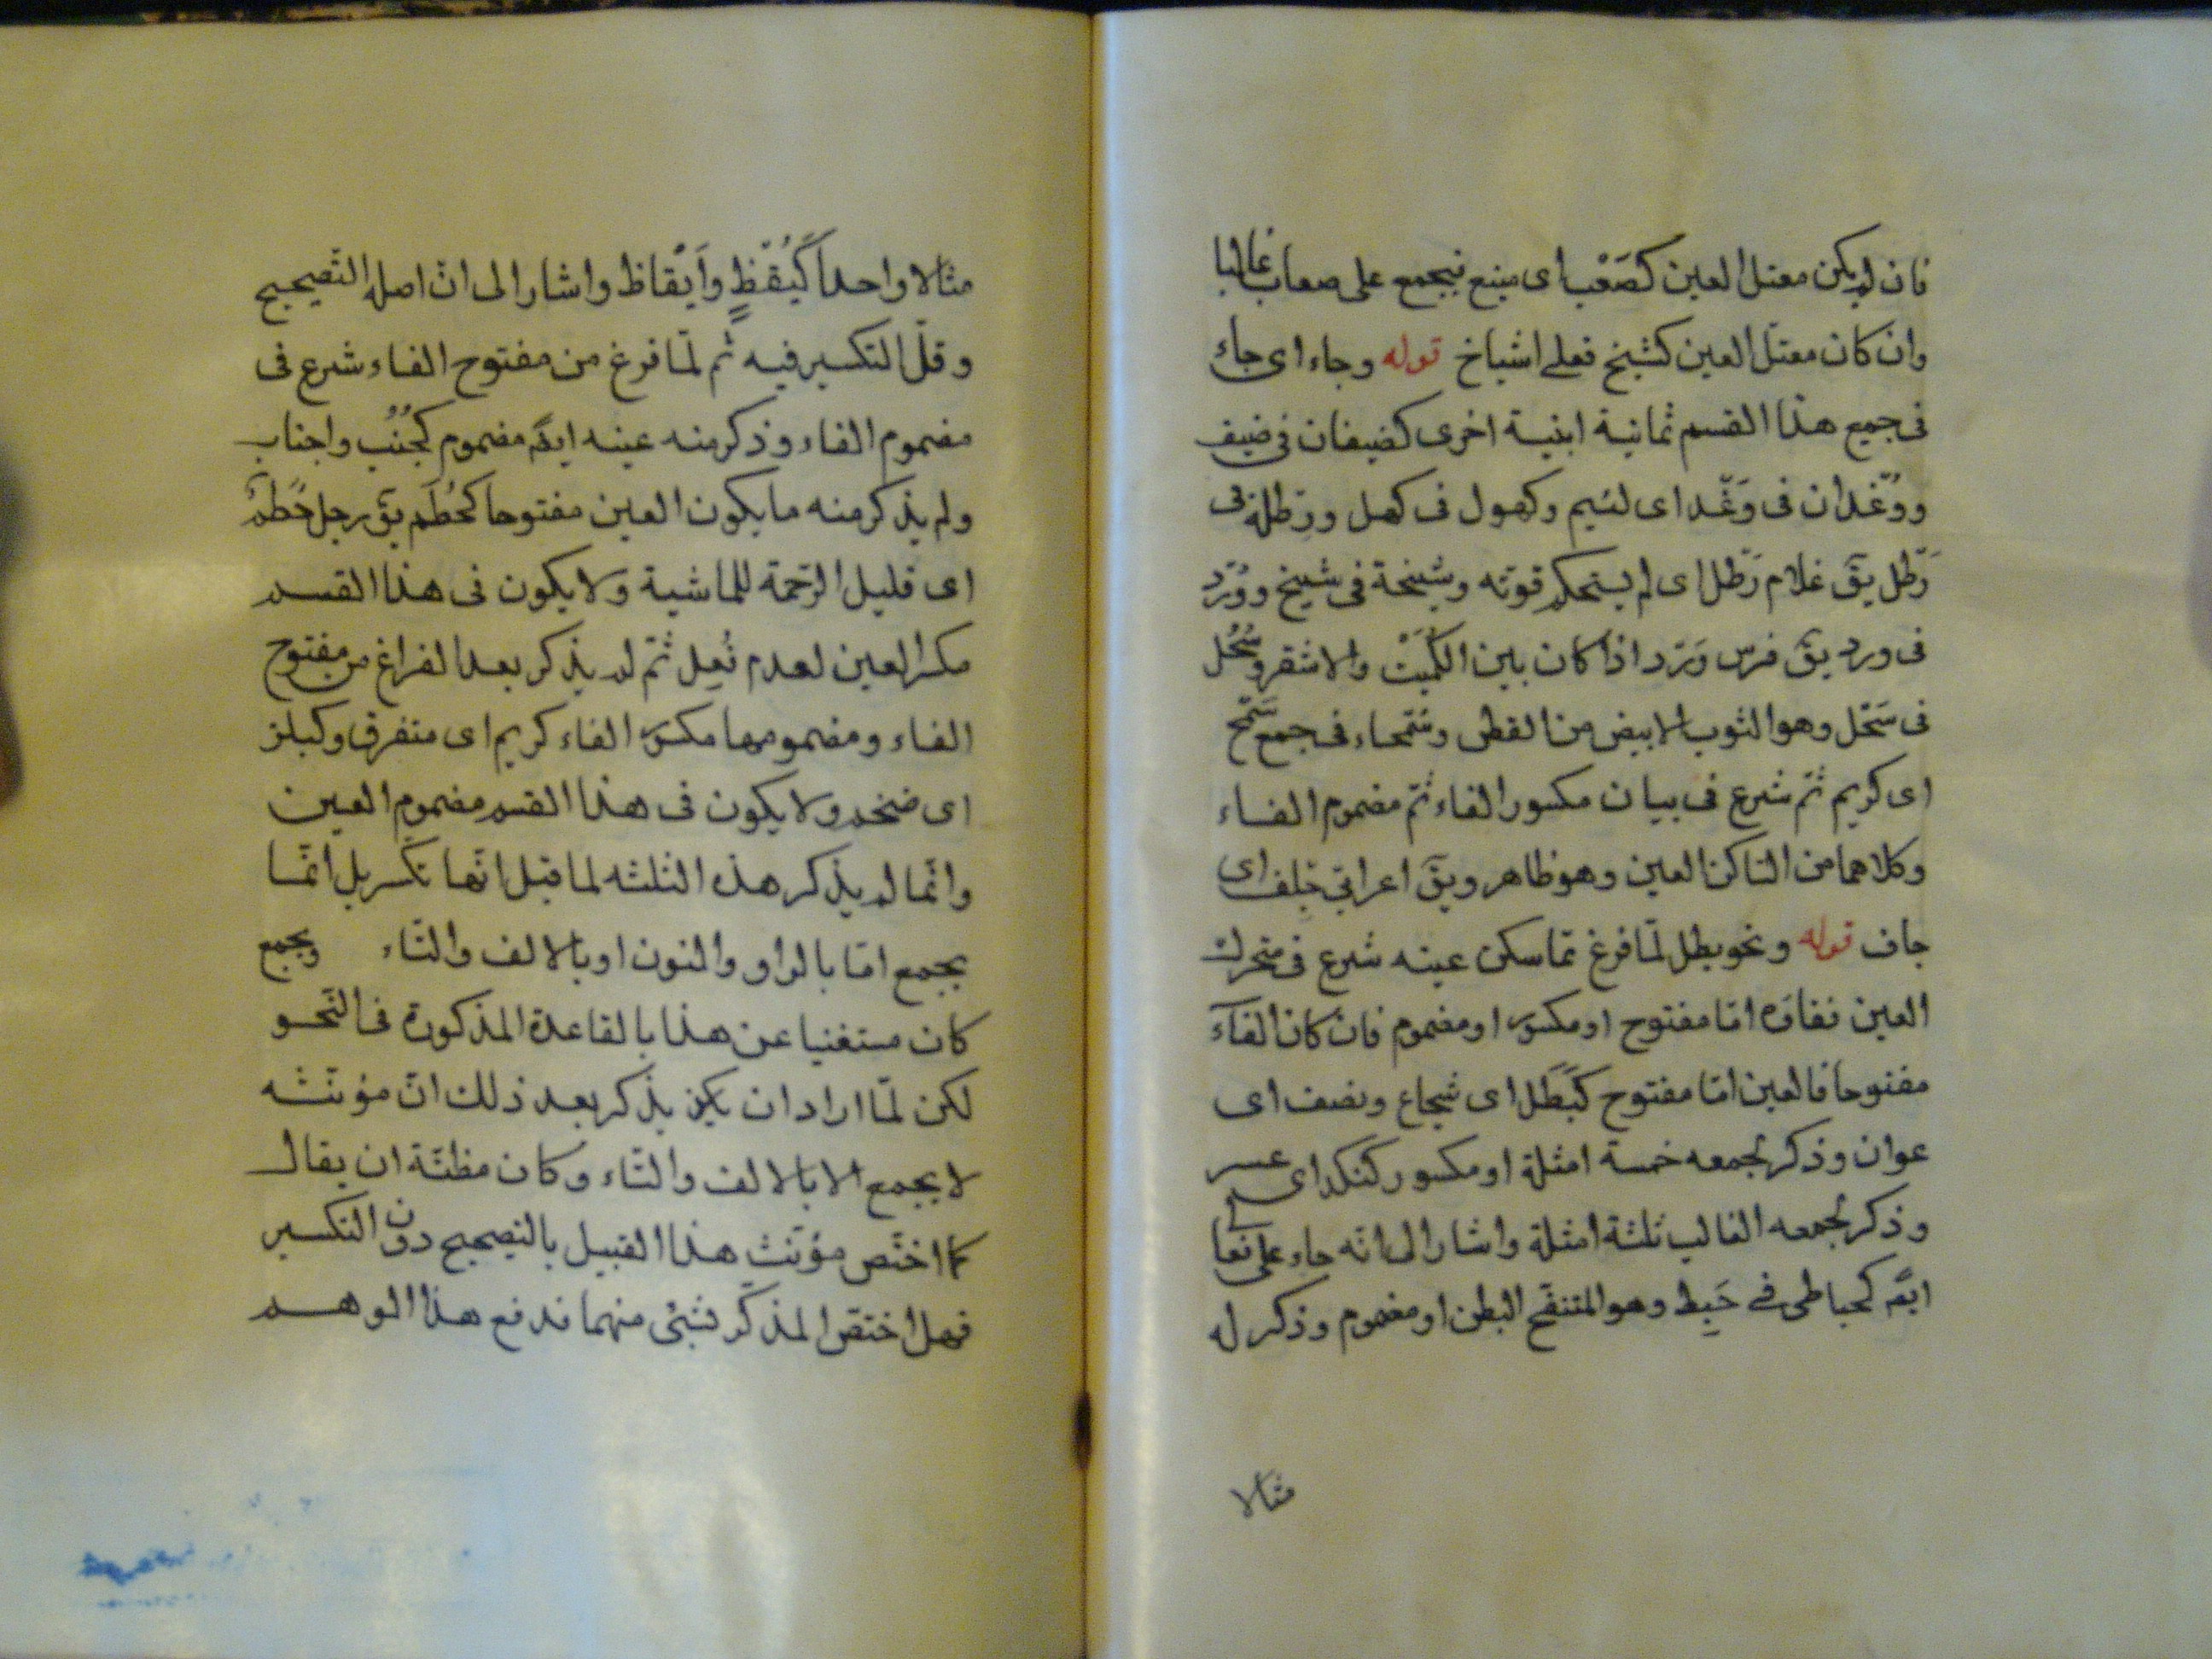 فان لم يكن معتل العين كصَعْب اى منيع فيجمع على صعاب غالبا
وان كان معتل العين كشيخ فعلى اشياخ قوله وجاء اى جاء
فى جمع هذا القسم ثمانية ابنية اخرى كضيفان فى ضيف
ووُغْدان فى وَغْد اى لئيم وكهول فى كهل ورِطلة فى
رَطْل يقَ غلام رَطْل اى لم يستحكم قوته وشيخة فى شيخ ووُرْد
فى ورد يقَ فرس وَرْد اذا كان بين الكُمَيْت والاشقر وسُحُل
فى سَحْل وهو الثوب الابيض من القطن وسُمَحاء فى جمع سَمْح
اى كريم ثم شرع فى بيان مكسور الفاء ثمّ مضموم الفاء
وكلاهما من الساكن العين وهو ظاهر ويقَ اعرابىّ جِلف اى
جاف قوله ونحو بطل لمّا فرغ مما سكن عينه شرع فى متحرك
العين ففاؤه امّا مفتوح او مكسور او مضموم فان كان الفاء
مفتوحا فالعين امّا مفتوح كبَطَل اى شجاع ونصف اى
عوان وذكر لجمعه خمسة امثلة او مكسور كنكد اى عسر
وذكر لجمعه الغالب ثلثة امثلة واشار الى انّه جاء على فعالى
ايضً كحباطى فى حَبِط وهو المتنفخ البطن او مضموم وذكر له
مثالا
مثالا واحداً كيَقُظٍ وأَيْقاظ واشار الى انّ اصله التّصحيح
وقلّ التكسير فيه ثم لمّا فرغ من مفتوح الفاء شرع فى
مضموم الفاء وذكر منه عينه ايضً مضموم كجُنُب واجناب
ولم يذكر منه ما يكون العين مفتوحا كحُطَم يقَ رجل حُطَم
اى قليل الرّحمة للماشية ولا يكون فى هذا القسم
مكسر العين لعدم فُعِل ثمّ لم يذكر بعد الفراغ من مفتوح
الفاء ومضمومها مكسور الفاء كزيم اى متفرق وكبلز
اى ضخم ولا يكون فى هذا القسم مضموم العين
وانّما لم يذكر هذه الثلثه لما قيل انّها تكسر بل انّما
يجمع امّا بالواو والنون او بالالف والتّاء ويجمع
كان مستغنيا عن هذا بالقاعدة المذكورة فى النّحو
لكن لمّا اراد ان يذكر بعد ذلك انّ مؤنّثه
لا يجمع الا بالالف والتّاء وكان مظنّة ان يقال
كما اختّص مؤنّث هذا القبيل بالتصحيح دون التكسير
فهل اختصّ المذكّر بشئ منهما فدفع هذا الوهم